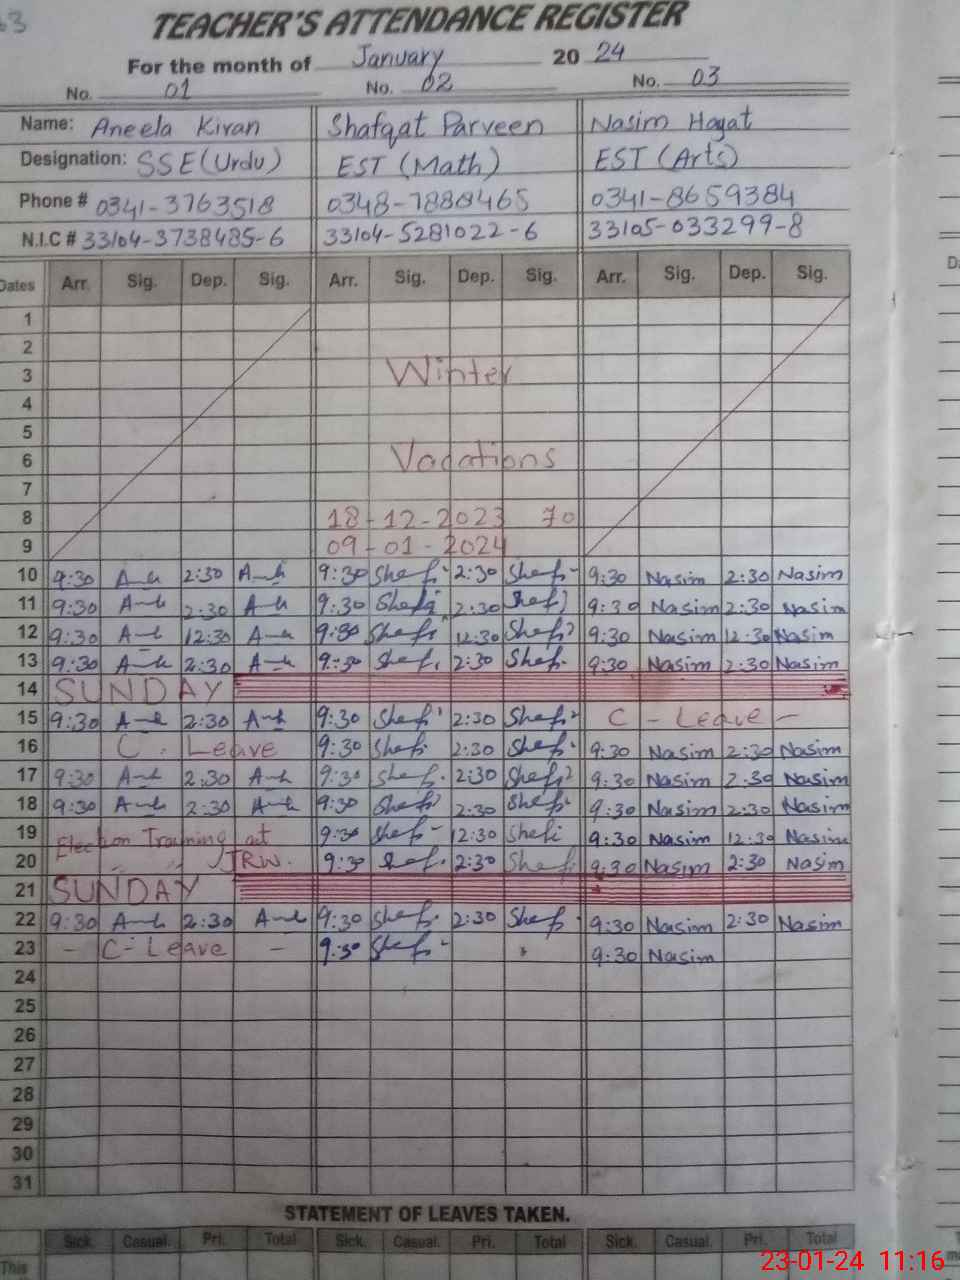 63
TEACHER'S ATTENDANCE REGISTER
For the month of January 20 24
No. 01 No. 02 No. 03
Name: Aneela Kiran Shafqat Parveen Nasim Hayat
Designation: SSE(Urdu) EST (Math) EST (Arts)
Phone # 0341-3763518 0348-7888465 0341-8659384
N.I.C # 33104-3738485-6 33104-5281022-6 33105-033299-8
Dates Arr. Sig. Dep. Sig. Arr. Sig. Dep. Sig. Arr. Sig. Dep. Sig.
1
2
3 Winter
4
5
6 Vacations
7
8 18-12-2023 To
9 09-01-2024
10 9:30 2:30 9:30 Shef 2:30 Shef 9:30 Nasim 2:30 Nasim
11 9:30 2:30 9:30 Shef 2:30 Shef 9:30 Nasim 2:30 Nasim
12 9:30 12:30 9:30 Shef 12:30 Shef 9:30 Nasim 12:30 Nasim
13 9:30 2:30 9:30 Shef 2:30 Shef 9:30 Nasim 2:30 Nasim
14 SUNDAY
15 9:30 2:30 9:30 Shef 2:30 Shef C - Leave -
16 C. Leave 9:30 Shef 2:30 Shef 9:30 Nasim 2:30 Nasim
17 9:30 2:30 9:30 Shef 2:30 Shef 9:30 Nasim 2:30 Nasim
18 9:30 2:30 9:30 Shef 2:30 Shef 9:30 Nasim 2:30 Nasim
19 Election Training at 9:30 Shef 12:30 Shef 9:30 Nasim 12:30 Nasim
20 JRW. 9:30 Shef 2:30 Shef 9:30 Nasim 2:30 Nasim
21 SUNDAY
22 9:30 2:30 9:30 Shef 2:30 Shef 9:30 Nasim 2:30 Nasim
23 - C-Leave - 9:30 Shef 9:30 Nasim
24
25
26
27
28
29
30
31
STATEMENT OF LEAVES TAKEN.
Sick. Casual. Pri. Total Sick. Casual. Pri. Total Sick. Casual. Pri. Total
This
23-01-24 11:16